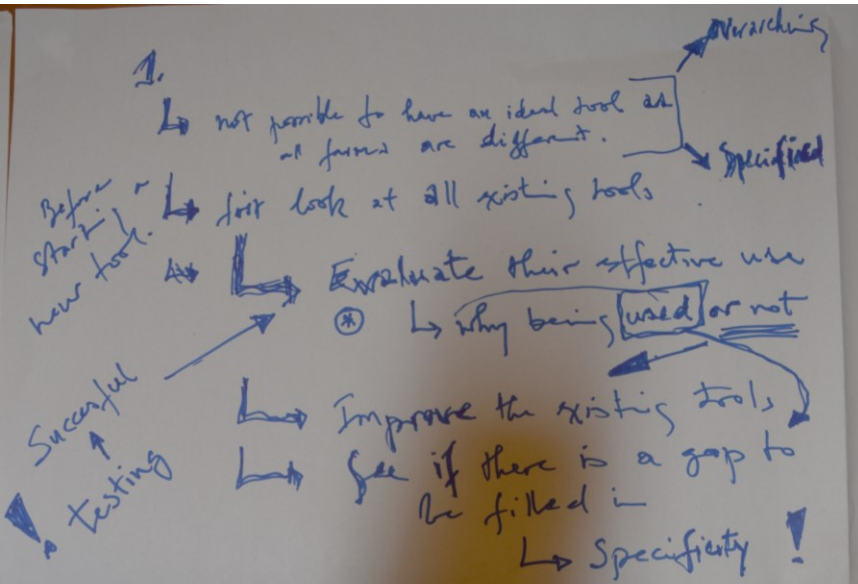 1.
overarching
↳ not possible to have an ideal tool as
all farms are different.
Specified
Before
starting a
new tool.
↳ first look at all existing tools
↳ Evaluate their effective use
* ↳ why being used or not
Succesful
testing
↳ Improve the existing tools
↳ See if there is a gap to
be filled in
↳ Specificity !